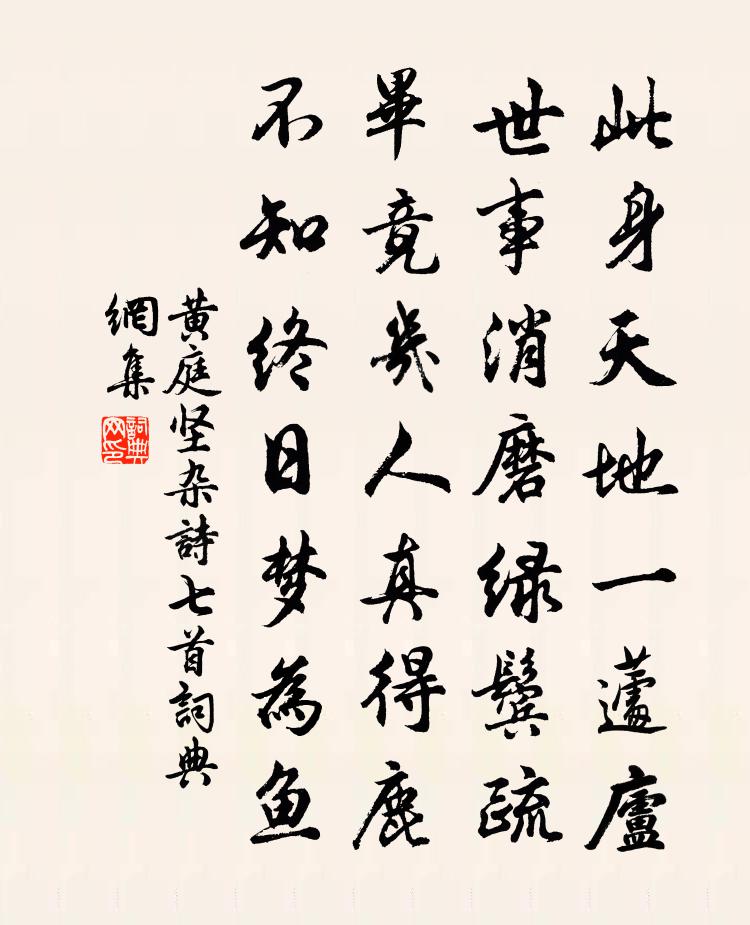 此身天地一蘧廬
世事消磨绿鬓疏
畢竟幾人真得鹿
不知终日梦為鱼
黄庭坚杂詩七首詞典
網集
詞典
网印